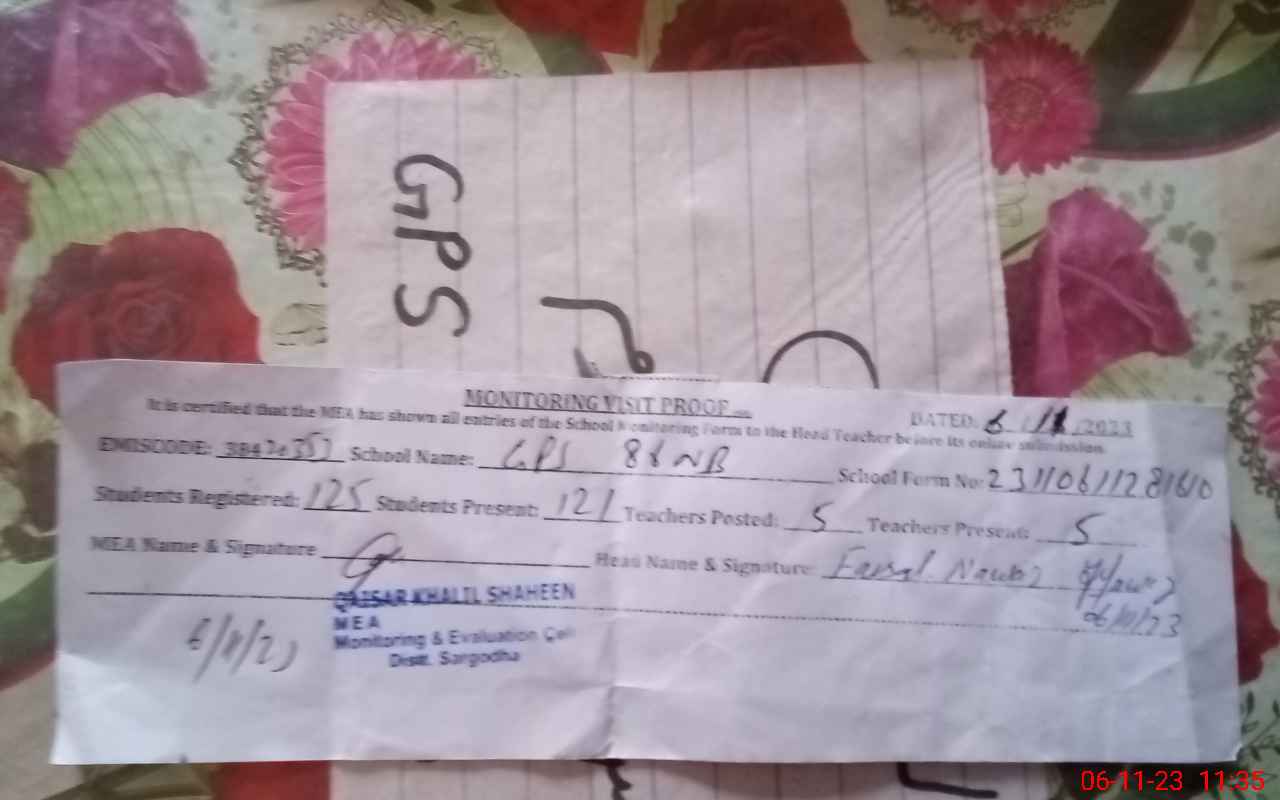 GPS
MONITORING VISIT PROOF
DATED: 6/11/2023
It is certified that the MEA has shown all entries of the School Monitoring Form to the Head Teacher before its online submission.
EMISCODE: School Name: GPS 88 NB School Form No: 23110611281610
Students Registered: 125 Students Present: 121 Teachers Posted: 5 Teachers Present: 5
MEA Name & Signature Head Name & Signature: Faisal Nawaz
06/11/23
6/11/23
QAISAR KHALIL SHAHEEN
MEA
Monitoring & Evaluation Cell
Distt. Sargodha
06-11-23 11:35